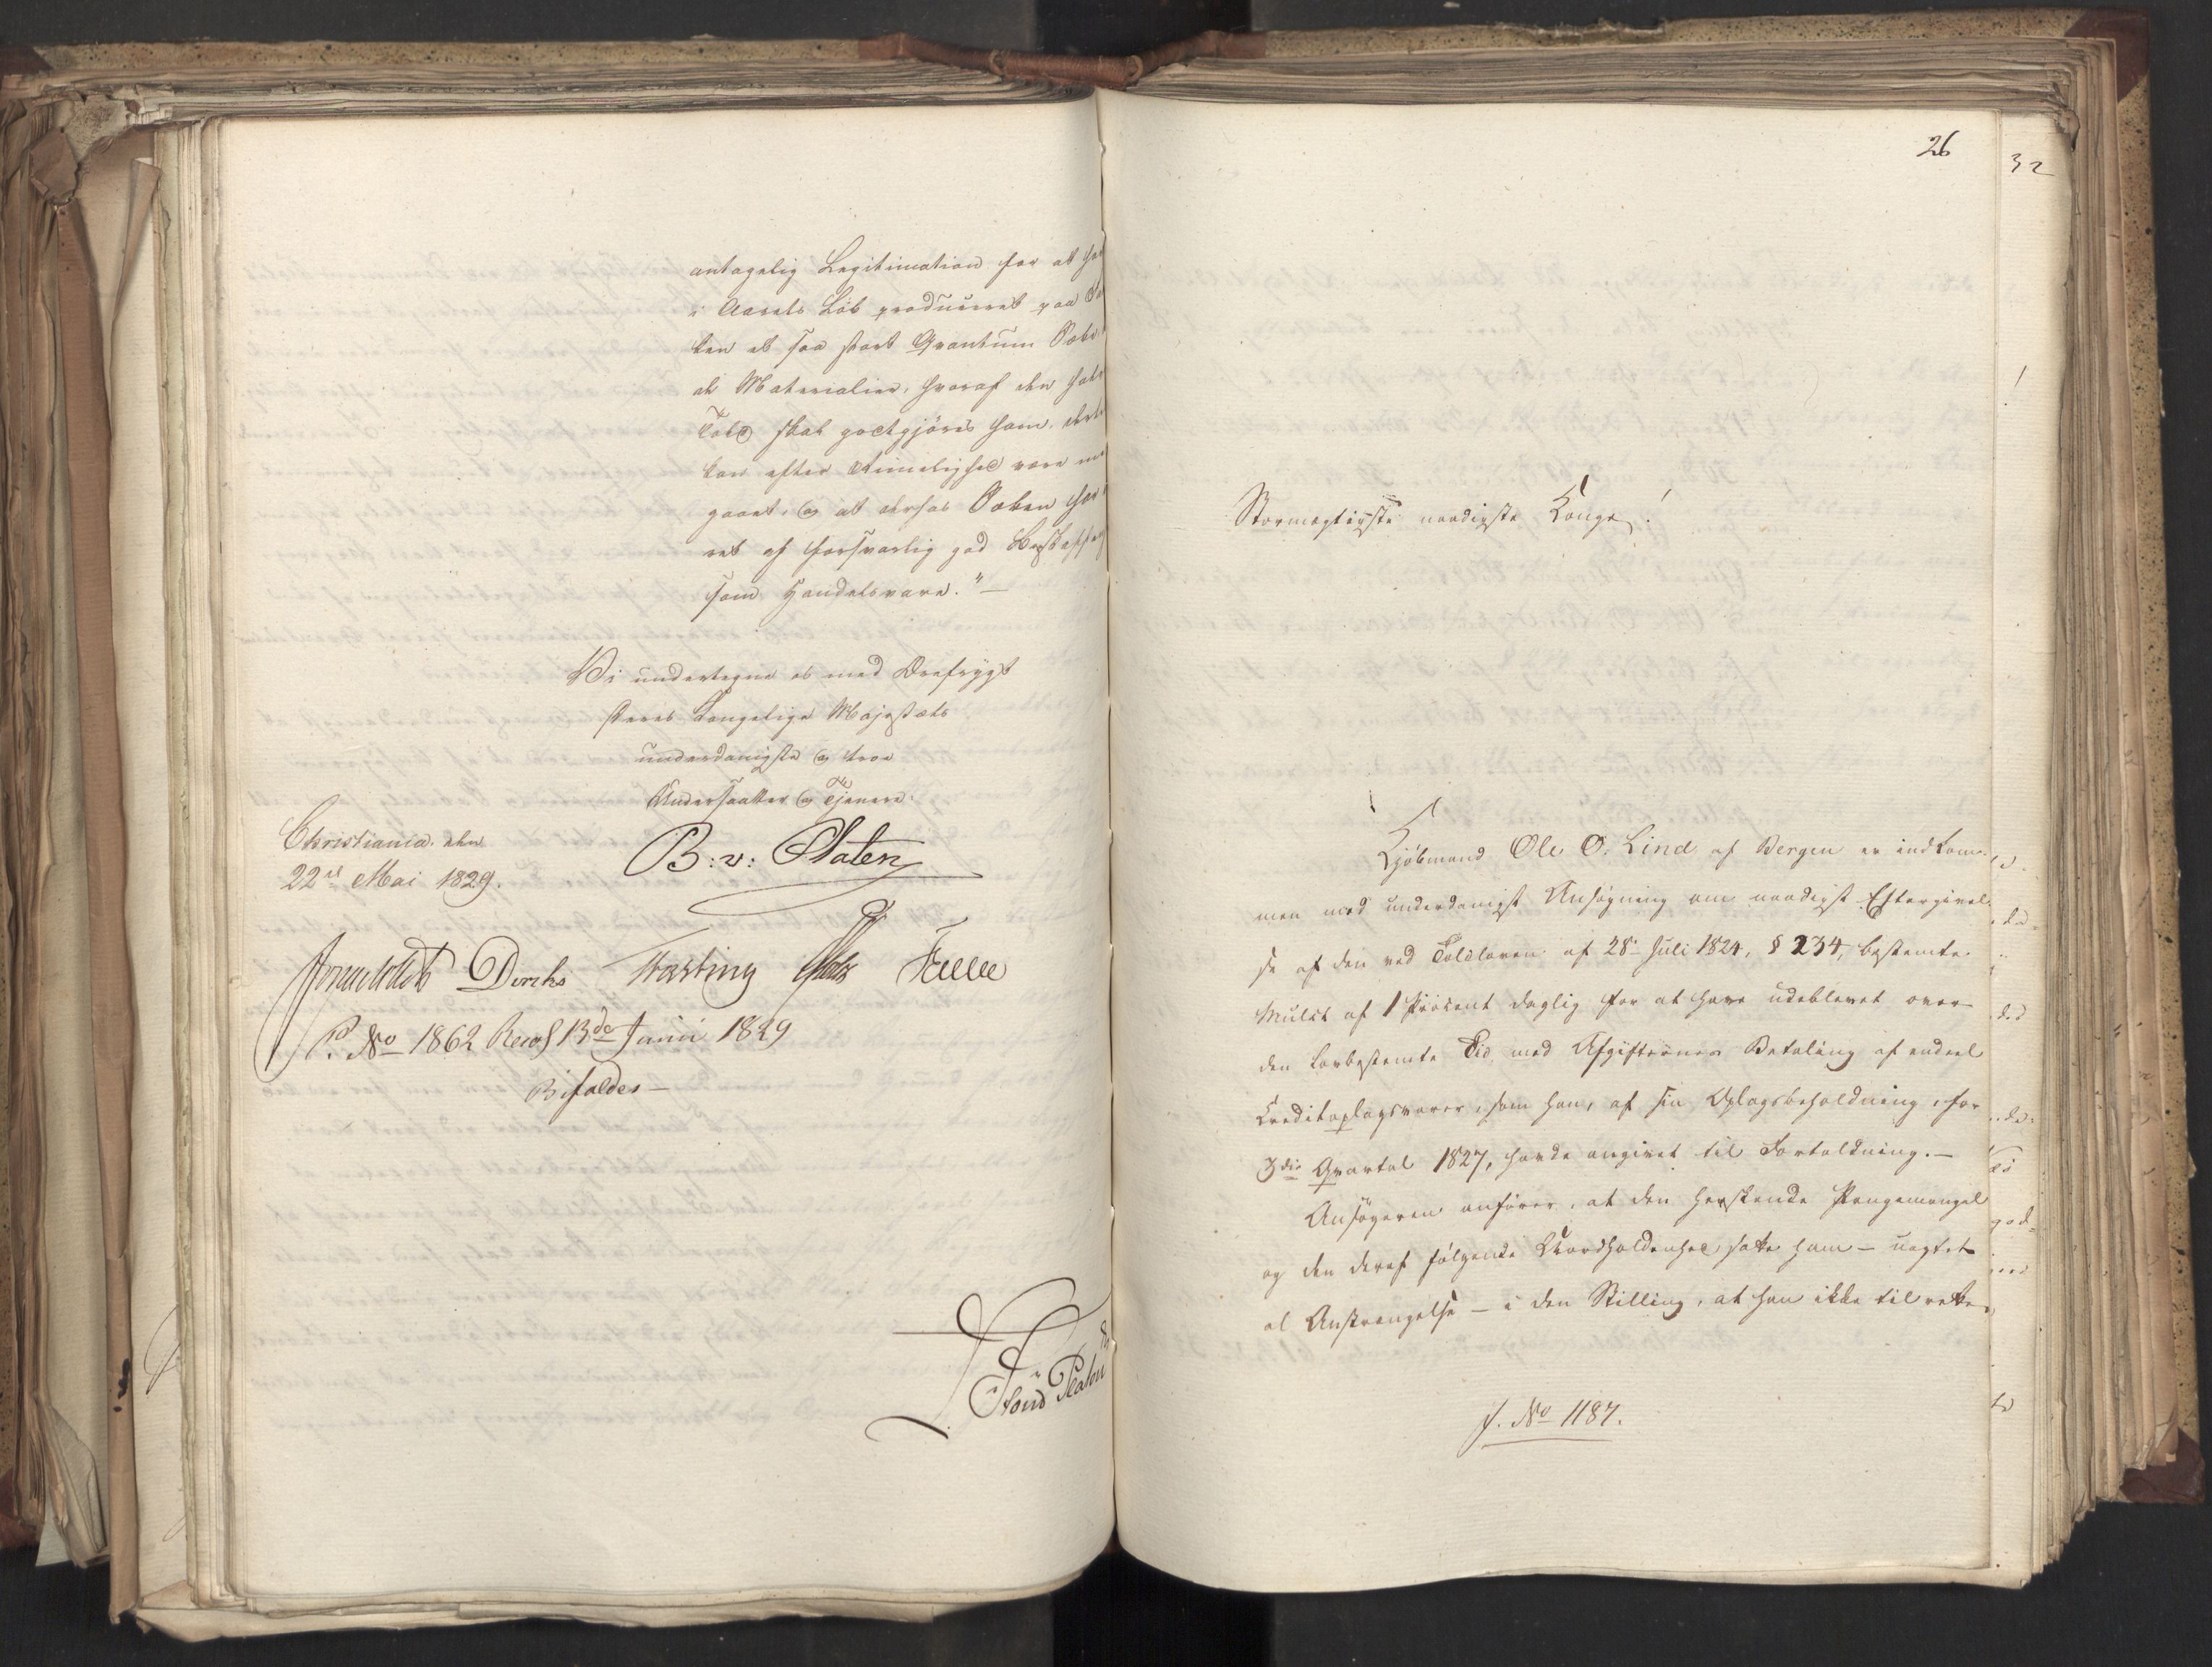 antagelig Legitimation for at
i Aarets Løb produceret paa
ken et saa stort Qvantum
de Materialier, hvoraf den
Told skal godtgjöres ham, derti
kan efter Rimelighed være
gaaet, og at dersas Sæben har
ret af forsvarlig god Beskaffen
som Handelsvare." —
Vi undertegne os med Ærefrygt
Deres Kongelige Majestæts
underdanigste og troe
Undersaatter og Tjenere.
Christiania den
22de Mai 1829.
B: v: Platen
Diriks Fasting Holst
P. No 1862 Reces 13de Junii 1829
Bifaldes —
Platen
26
32
Stormægtigste naadigste Konge!
Kjöbmand Ole O. Lind af Bergen er indkom-
men med underdanigst Ansøgning om naadigst Eftergivel-
se af den ved Toldloven af 28de Juli 1824, § 234, bestemte
Mulct af 1 Procent daglig for at have udeblevet over
den lovbestemte Tid med Afgifternes Betaling af endeel
Creditoplagsvarer, som han, af sin Oplagsbeholdning, for
3die Qvartal 1827, havde angivet til Fortoldning. —
Ansøgeren anfører, at den herskende Pengemangel
og den deraf følgende Uvordholdenhed satte ham — uagtet
al Anstrængelse — i den Stilling, at han ikke til rette
J. No 1187.